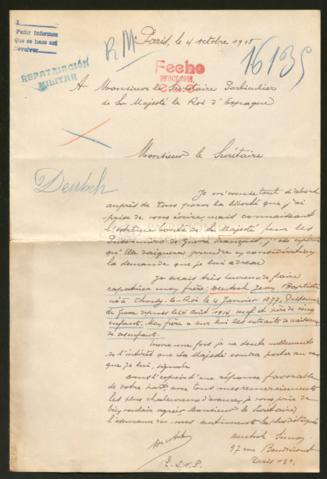 Pedir informes
que se hace así
R. M.
Paris, le 4 octobre 1915
REPATRIACIÓN
MILITAR
Fecho
16135
A Monsieur le Secrétaire Particulier
de Sa Majesté le Roi d'Espagne
Monsieur le Secrétaire
Deutsch
Je m'excuse tout d'abord
auprès de vous pour la liberté que j'ai
prise de vous écrire, mais connaissant
l'extrême bonté de Sa Majesté pour les
Prisonniers de Guerre français, j'ose espérer
qu'Elle daignera prendre en considération
la demande que je lui adresse
Je serais très heureux de faire
rapatrier mon frère, Deutsch Jean Baptiste
né à Choisy-le-Roi le 4 Janvier 1877, Prisonnier
de Guerre depuis le Août 1914, veuf et père de cinq
enfants. Mon frère a sur lui les extraits de naissance
de ses enfants.
Encore une fois je ne doute nullement
de l'intérêt que Sa Majesté voudra porter au cas
que je lui signale
dans l'espoir d'une réponse favorable
de votre part avec tous mes remerciements
les plus chaleureux d'avance, je vous prie de
bien vouloir agréer Monsieur le Secrétaire,
l'assurance de mes sentiments les plus distingués
Deutsch
97 rue
Paris